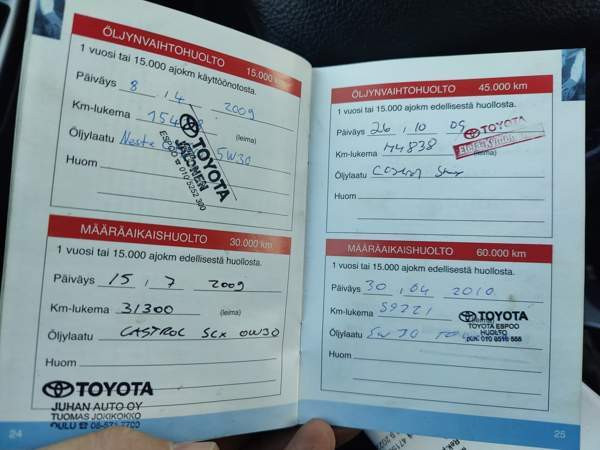 ÖLJYNVAIHTOHUOLTO 15.000 km
1 vuosi tai 15.000 ajokm käyttöönotosta.
Päiväys 8 . 4 . 2009
Km-lukema 154 (leima)
Öljylaatu Neste 5W30
Huom
TOYOTA
JALOMEN
ESPOO 010 5252 300
MÄÄRÄAIKAISHUOLTO 30.000 km
1 vuosi tai 15.000 ajokm edellisestä huollosta.
Päiväys 15 . 7 . 2009
Km-lukema 31300 (leima)
Öljylaatu CASTROL SLX 0W30
Huom
TOYOTA
JUHAN AUTO OY
TUOMAS JOKIKOKKO
OULU 08-571 7700
24
ÖLJYNVAIHTOHUOLTO 45.000 km
1 vuosi tai 15.000 ajokm edellisestä huollosta.
Päiväys 26 . 10 09
Km-lukema 44838 (leima)
TOYOTA
Öljylaatu
Huom
MÄÄRÄAIKAISHUOLTO 60.000 km
1 vuosi tai 15.000 ajokm edellisestä huollosta.
Päiväys 30 . 04 2010
Km-lukema 59221 (leima)
Öljylaatu 5W30
Huom
TOYOTA
TOYOTA ESPOO
HUOLTO
PUH. 010 8516 566
25